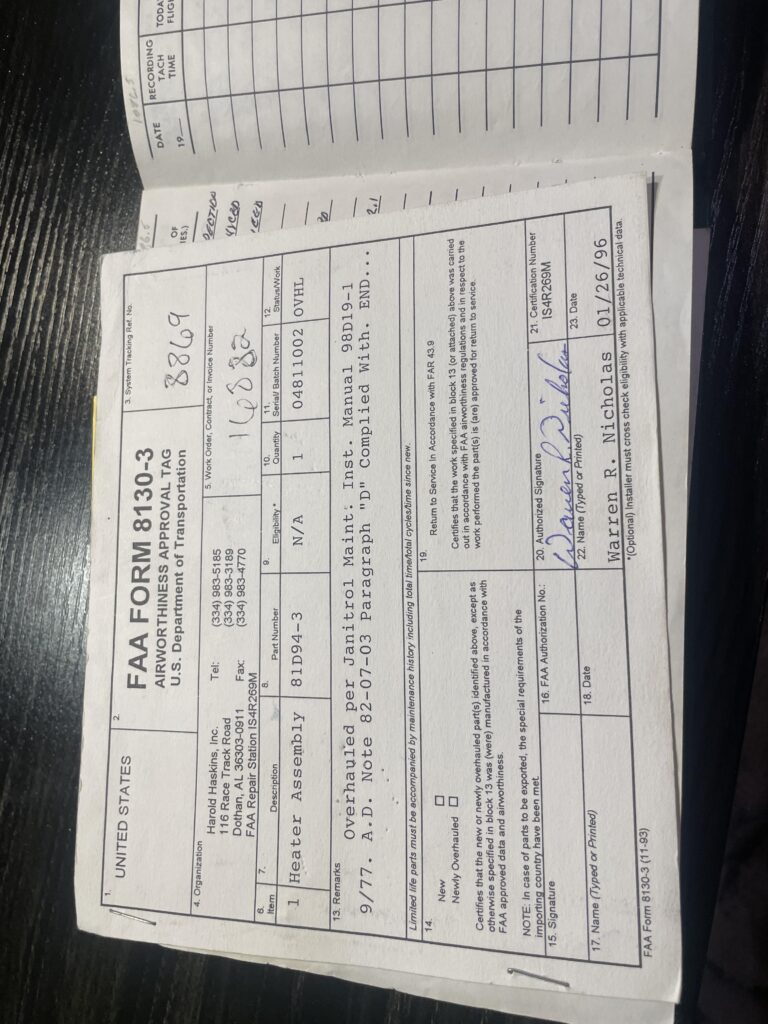 1.
UNITED STATES
2.
FAA FORM 8130-3
AIRWORTHINESS APPROVAL TAG
U.S. Department of Transportation
3. System Tracking Ref. No.
8869
4. Organization
Harold Haskins, Inc.
116 Race Track Road
Dothan, AL 36303-0911
FAA Repair Station IS4R269M
Tel: (334) 983-5185
(334) 983-3189
Fax: (334) 983-4770
5. Work Order, Contract, or Invoice Number
16882
6. Item
7. Description
8. Part Number
9. Eligibility *
10. Quantity
11. Serial/ Batch Number
12. Status/Work
1 Heater Assembly 81D94-3 N/A 1 04811002 OVHL
13. Remarks
Overhauled per Janitrol Maint: Inst. Manual 98D19-1
9/77. A.D. Note 82-07-03 Paragraph "D" Complied With. END...
Limited life parts must be accompanied by maintenance history including total time/total cycles/time since new.
14.
New
Newly Overhauled
Certifies that the new or newly overhauled part(s) identified above, except as
otherwise specified in block 13 was (were) manufactured in accordance with
FAA approved data and airworthiness.
NOTE: In case of parts to be exported, the special requirements of the
importing country have been met.
19.
Return to Service In Accordance with FAR 43.9
Certifies that the work specified in block 13 (or attached) above was carried
out in accordance with FAA airworthiness regulations and in respect to the
work performed the part(s) is (are) approved for return to service.
15. Signature
16. FAA Authorization No.:
20. Authorized Signature
Warren R. Nicholas
21. Certification Number
IS4R269M
17. Name (Typed or Printed)
18. Date
22. Name (Typed or Printed)
Warren R. Nicholas
23. Date
01/26/96
FAA Form 8130-3 (11-93)
*(Optional) Installer must cross check eligibility with applicable technical data.
DATE
19__
RECORDING
TACH
TIME
TODA
FLIG
OF
IES.)